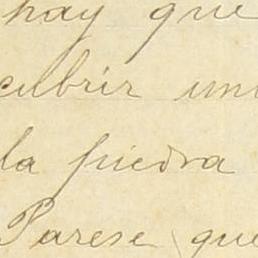 hay que
cubrir un
la piedra
Parese que